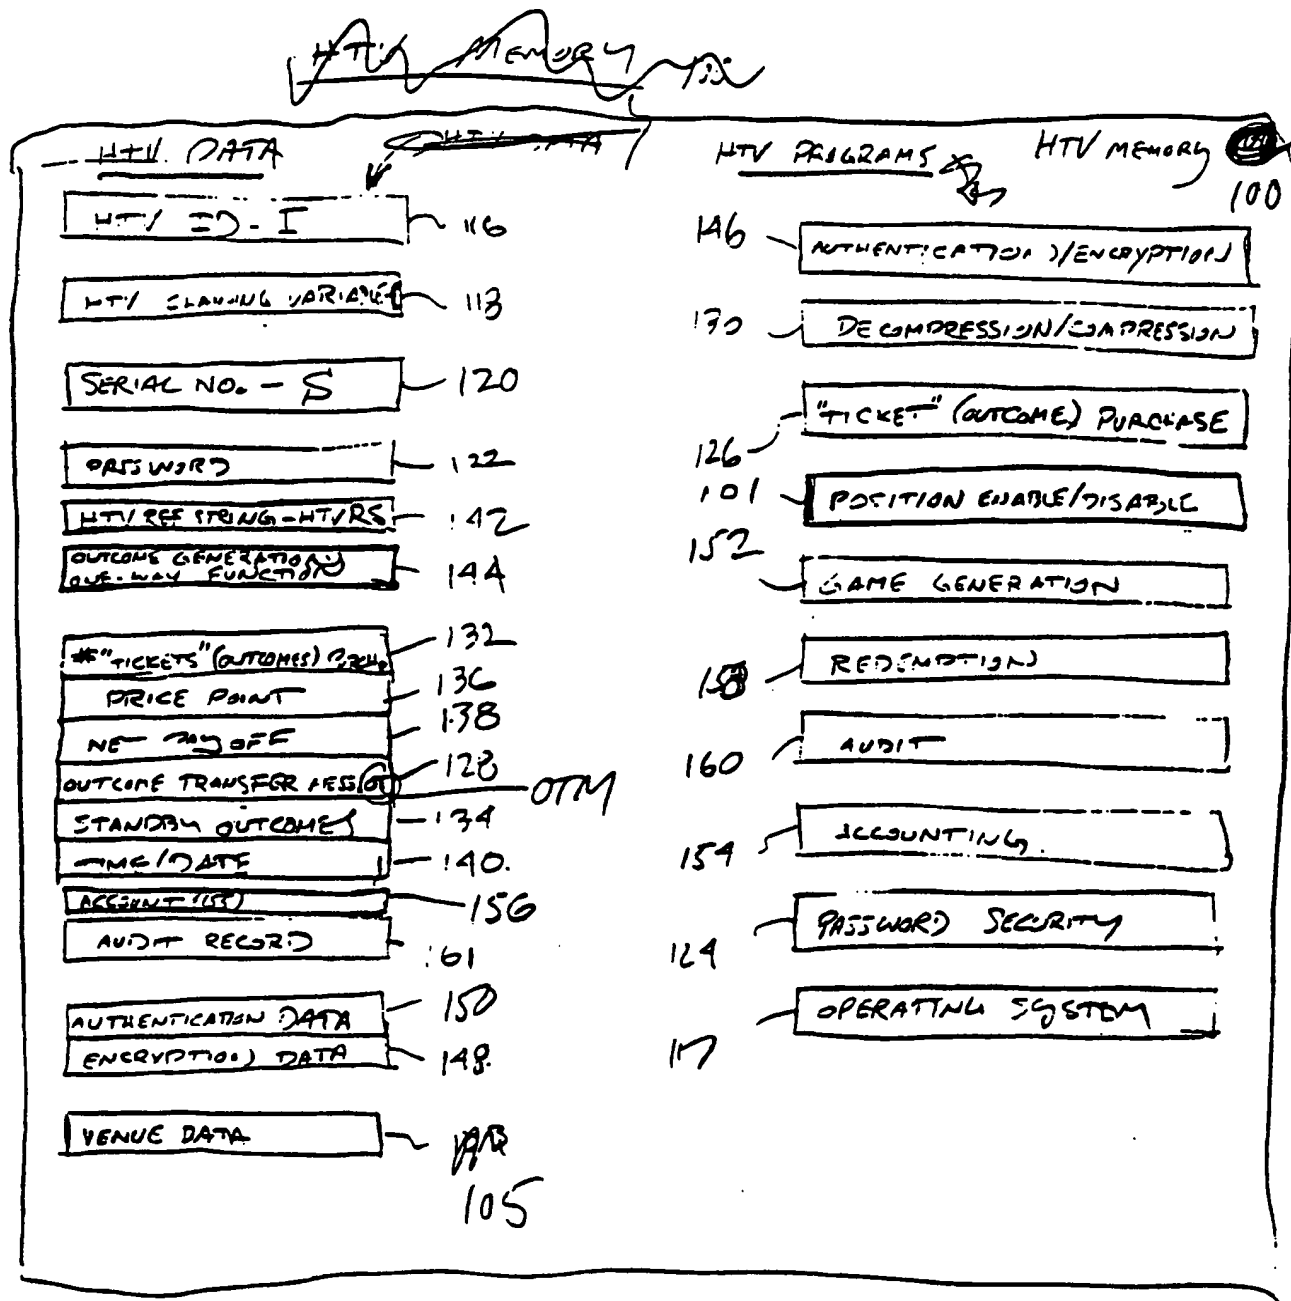 HTV MEMORY
HTV DATA
HTV DATA
HTV PROGRAMS
HTV MEMORY
100
HTV ID - I
116
HTV GAMING VARIABLES
118
SERIAL NO. - S
120
PASSWORD
122
HTV REF STRING - HTVRS
142
OUTCOME GENERATION
ONE-WAY FUNCTION
144
#"TICKETS" (OUTCOMES)
132
PRICE POINT
136
NET PAYOFF
138
OUTCOME TRANSFER MESS
128
OTM
STANDBY OUTCOMES
134
TIME/DATE
140
ACCOUNT
156
AUDIT RECORD
161
AUTHENTICATION DATA
150
ENCRYPTION DATA
148
VENUE DATA
105
146
AUTHENTICATION /ENCRYPTION
130
DECOMPRESSION/COMPRESSION
"TICKET" (OUTCOME) PURCHASE
126
101
POSITION ENABLE/DISABLE
152
GAME GENERATION
REDEMPTION
158
AUDIT
160
ACCOUNTING
154
PASSWORD SECURITY
124
OPERATING SYSTEM
117